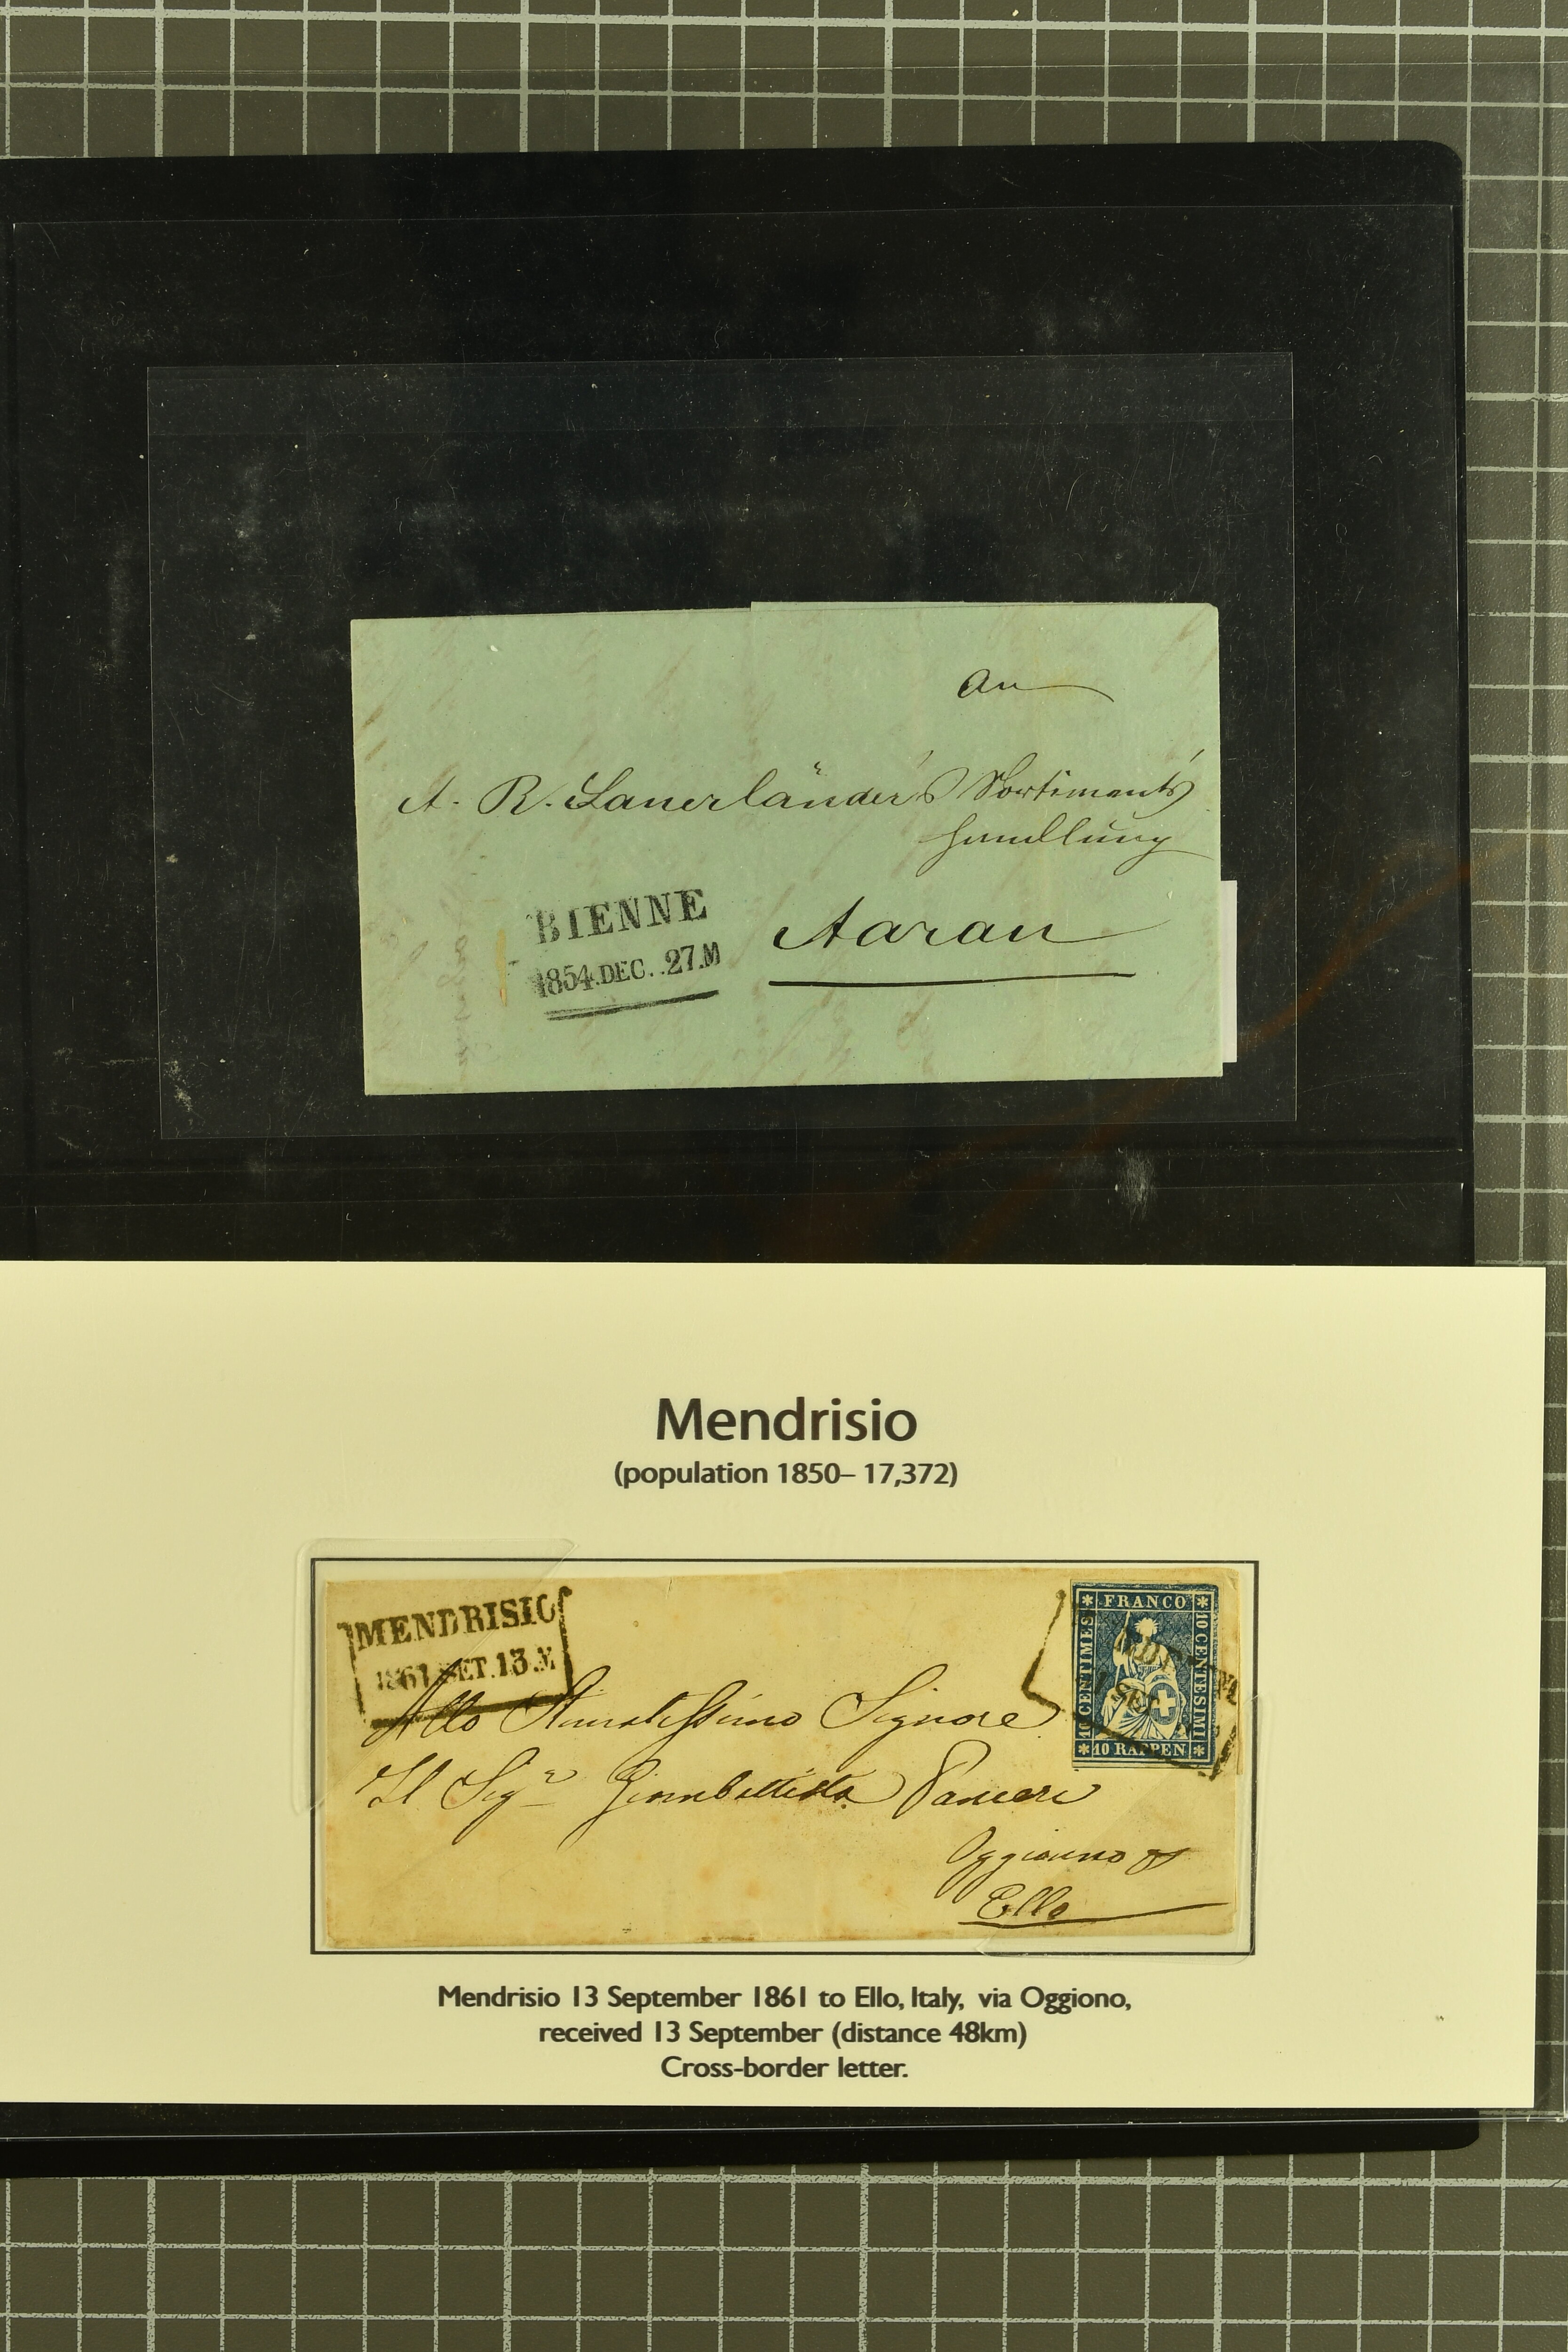 An
A. R. Sauerländer's Sortiments
handlung
BIENNE
1854.DEC..27.M
Aarau
Mendrisio
(population 1850– 17,372)
MENDRISIO
1861 SET.13.M
FRANCO
10 CENTIMES
10 CENTESIMI
10 RAPPEN
Allo Stimatissimo Signore
Il Sigr Giambattista Panceri
Oggionno
Ello
Mendrisio 13 September 1861 to Ello, Italy, via Oggiono,
received 13 September (distance 48km)
Cross-border letter.